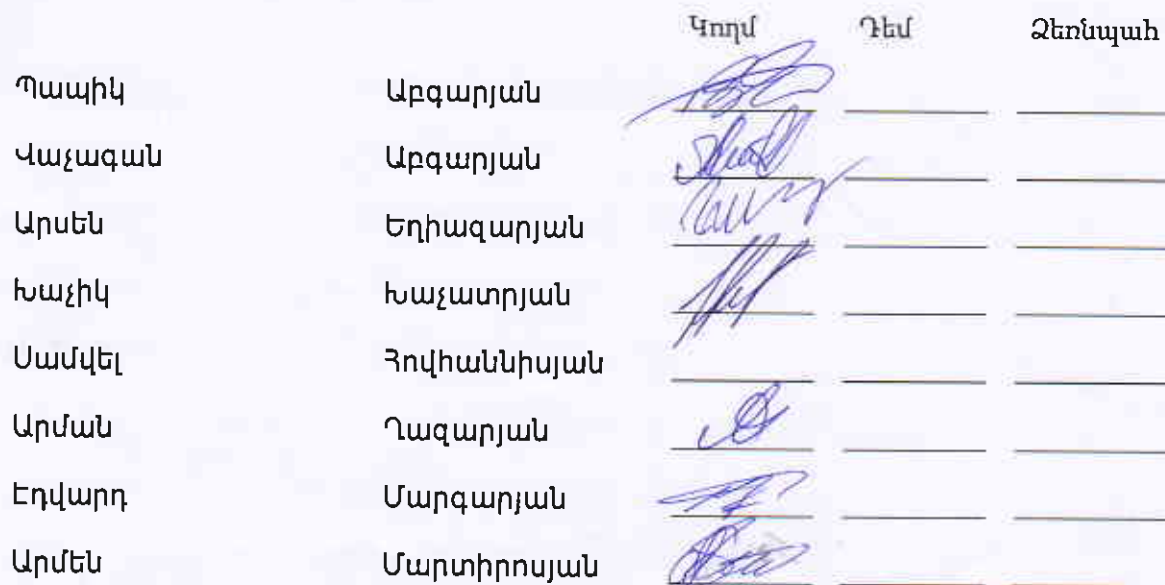 Կողմ Դեմ Ձեռնպահ
Պապիկ Աբգարյան
Վաչագան Աբգարյան
Արսեն Եղիազարյան
Խաչիկ Խաչատրյան
Սամվել Հովհաննիսյան
Արման Ղազարյան
Էդվարդ Մարգարյան
Արմեն Մարտիրոսյան